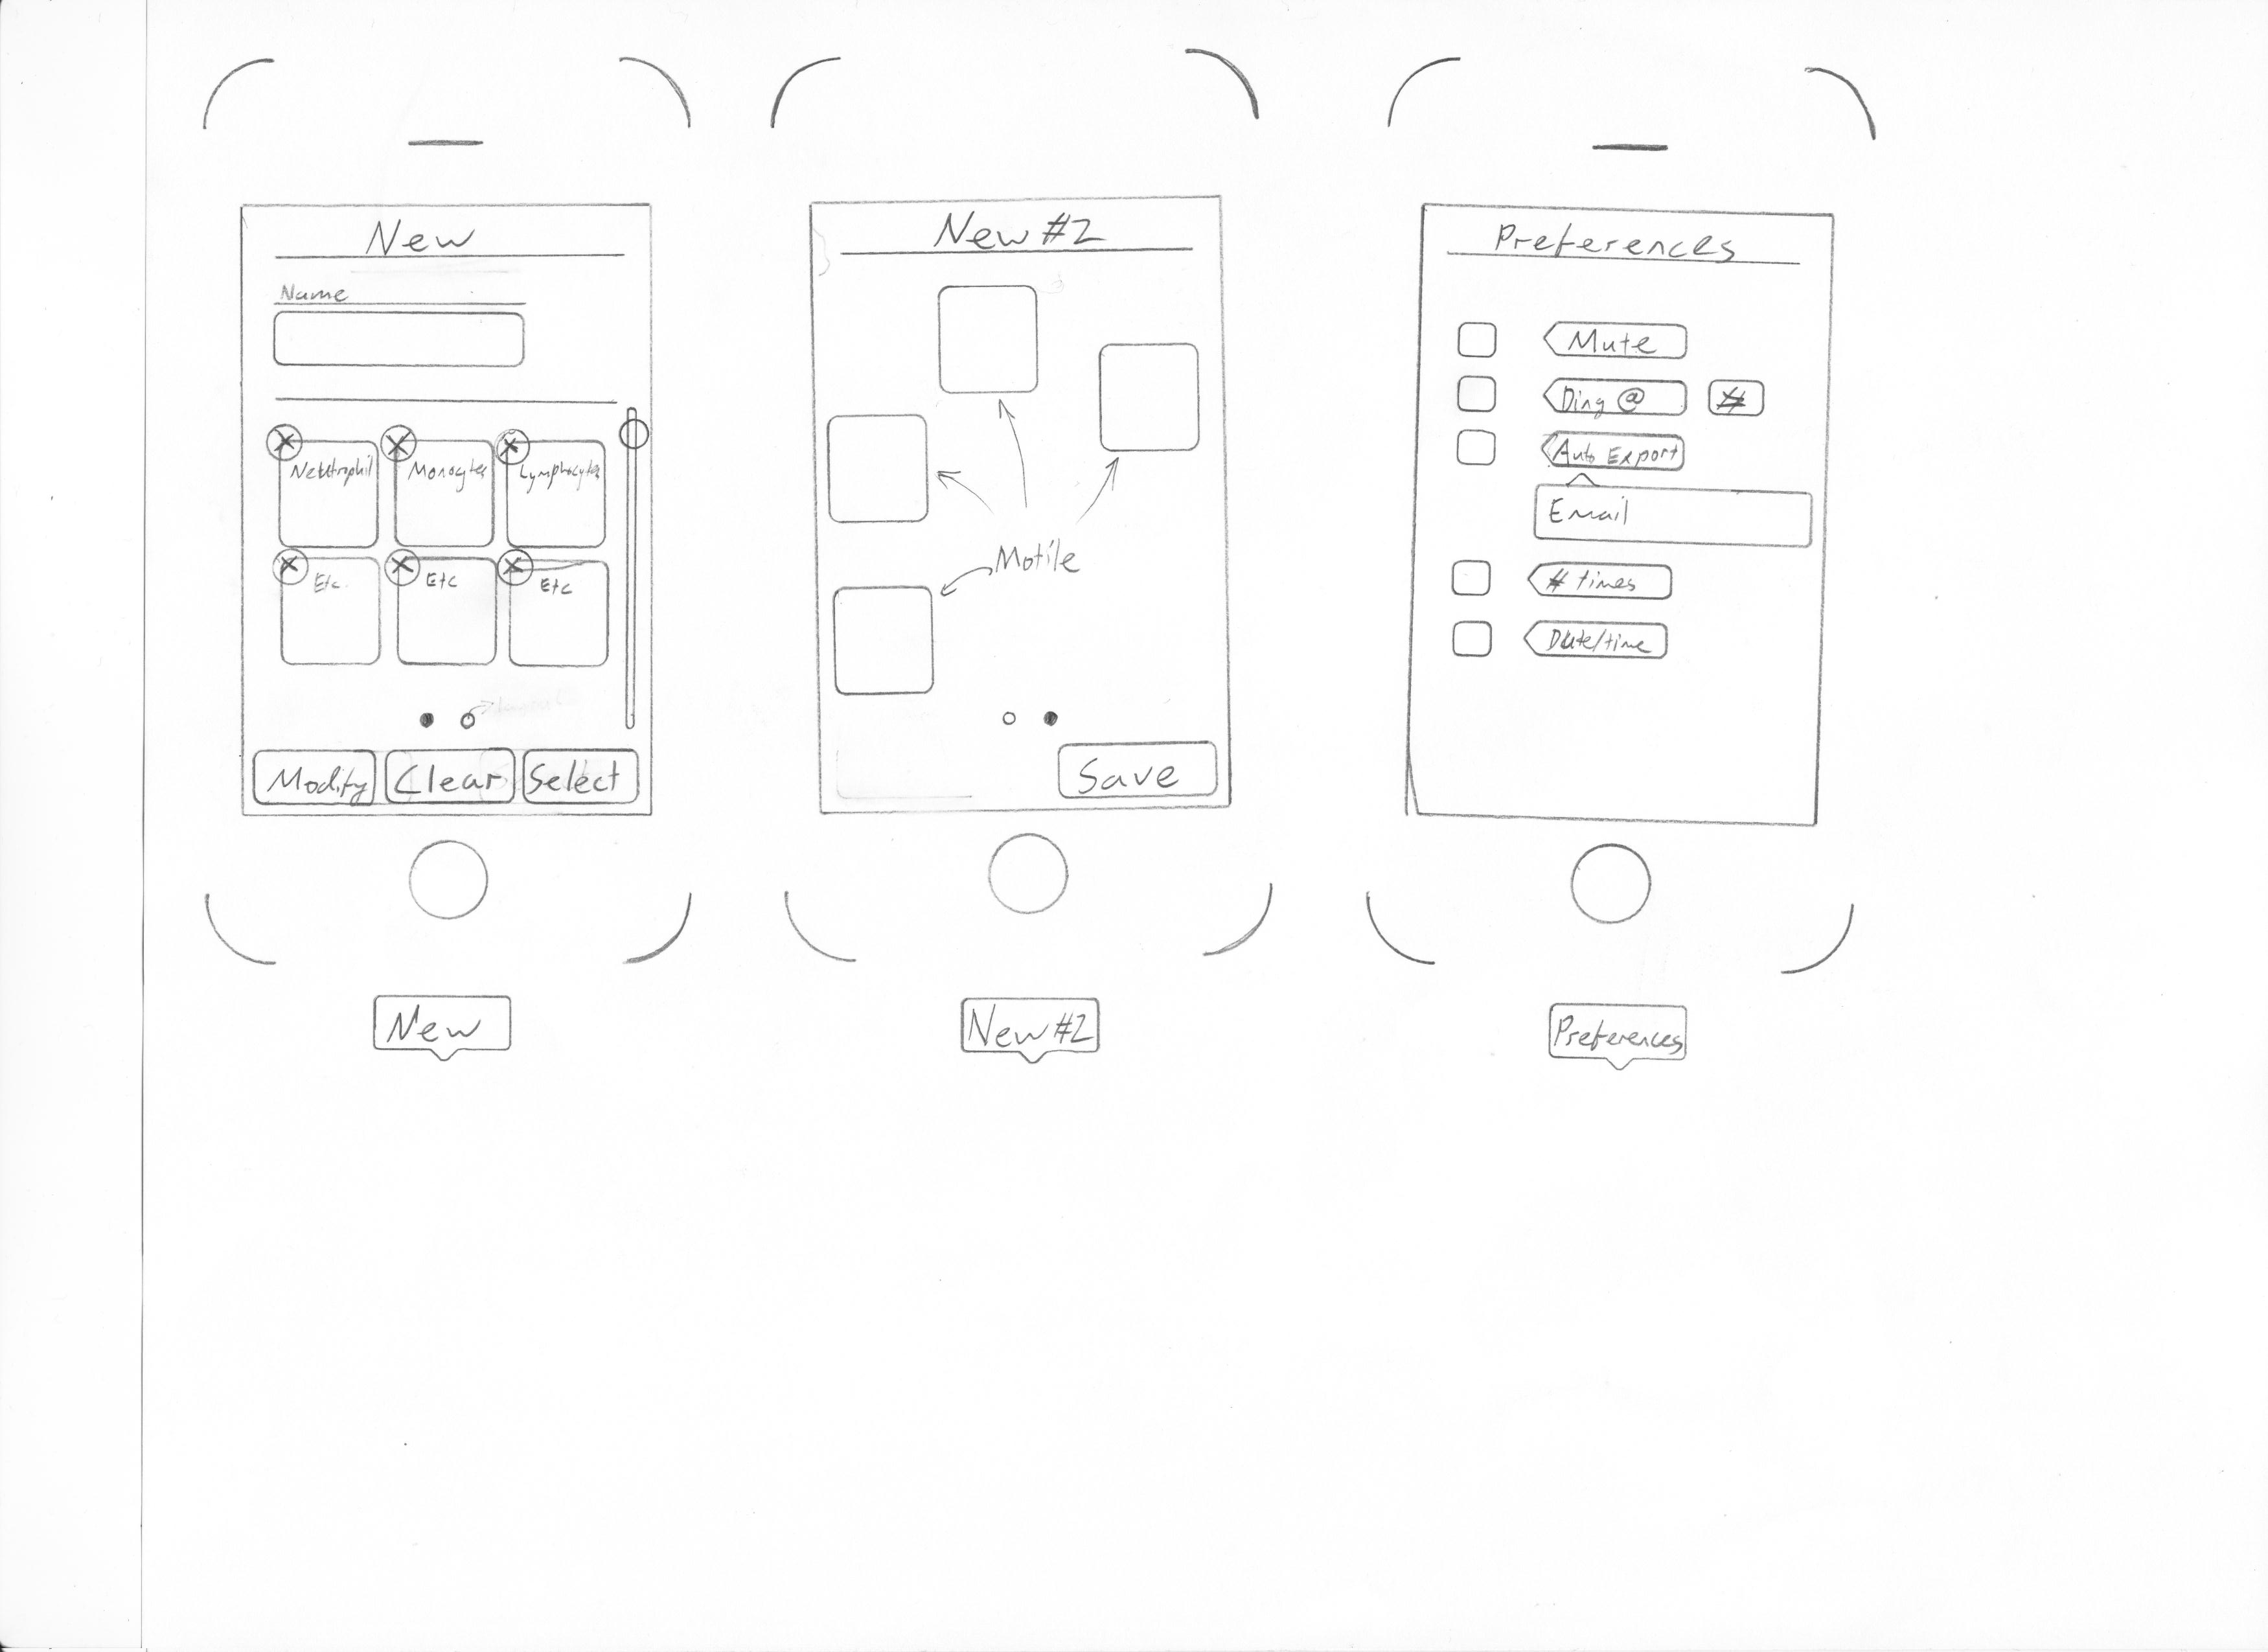 New
Name
Neutrophil Monocytes Lymphocytes
Etc. Etc Etc
Modify Clear Select
New
New #2
Motile
Save
New #2
Preferences
Mute
Ding @ #
Auto Export
Email
# times
Date/time
Preferences